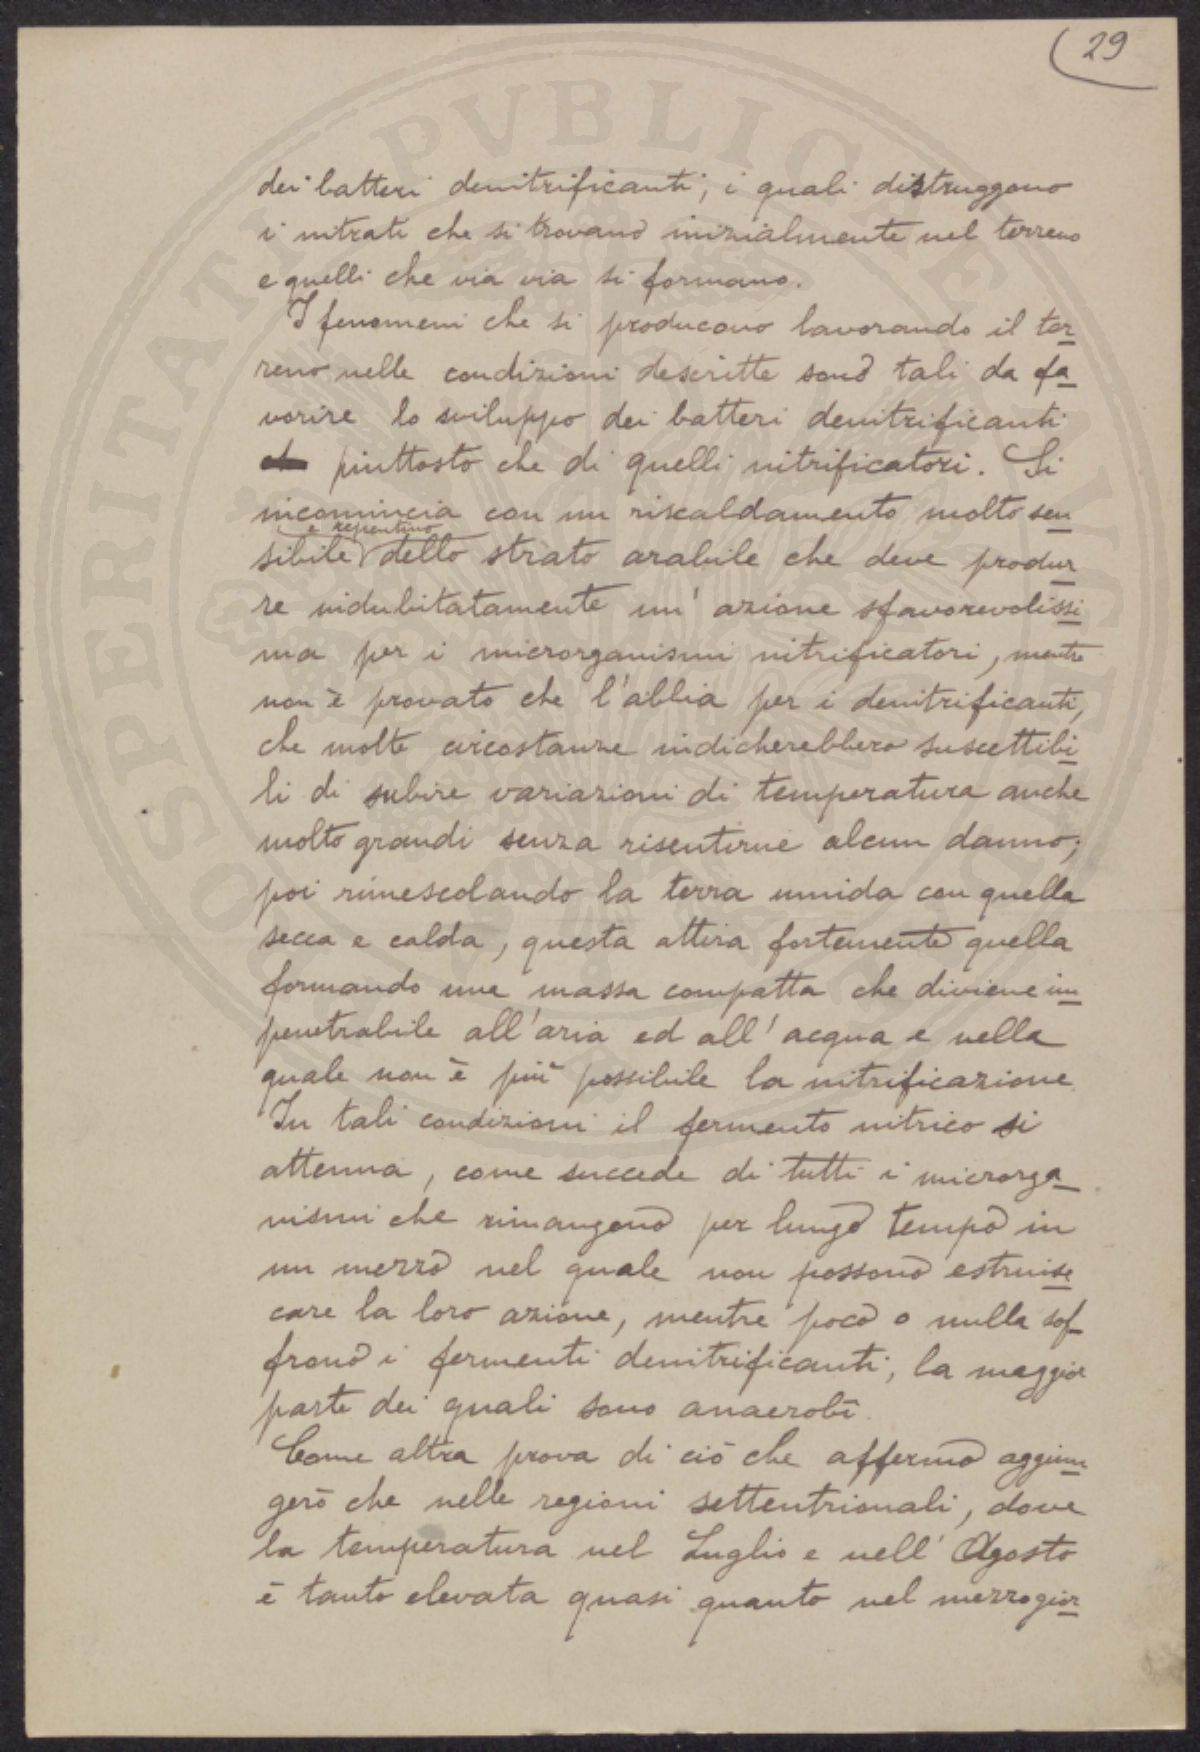 29
dei batteri denitrificanti, i quali distruggono
i nitrati che si trovano inizialmente nel terreno
e quelli che via via si formano.
I fenomeni che si producono lavorando il ter
reno nelle condizioni descritte sono tali da fa
vorire lo sviluppo dei batteri denitrificanti
piuttosto che di quelli nitrificatori. Si
incomincia con un riscaldamento molto sen
e repentino
sibile dello strato arabile che deve produr
re indubitatamente un'azione sfavorevolissi
ma per i microrganismi nitrificatori, mentre
non è provato che l'abbia per i denitrificanti,
che molte circostanze indicherebbero suscettibi
li di subire variazioni di temperatura anche
molto grandi senza risentirne alcun danno;
poi rimescolando la terra umida con quella
secca e calda, questa attira fortemente quella
formando una massa compatta che diviene im
penetrabile all'aria ed all'acqua e nella
quale non è più possibile la nitrificazione.
In tali condizioni il fermento nitrico si
attenua, come succede di tutti i microrga
nismi che rimangono per lungo tempo in
un mezzo nel quale non possono estrinse
care la loro azione, mentre poco o nulla sof
frono i fermenti denitrificanti, la maggior
parte dei quali sono anaerobi.
Come altra prova di ciò che affermo aggiun
gerò che nelle regioni settentrionali, dove
la temperatura nel Luglio e nell'Agosto
è tanto elevata quasi quanto nel mezzogior
PROSPERITATI PVBLICAE AVGENDAE